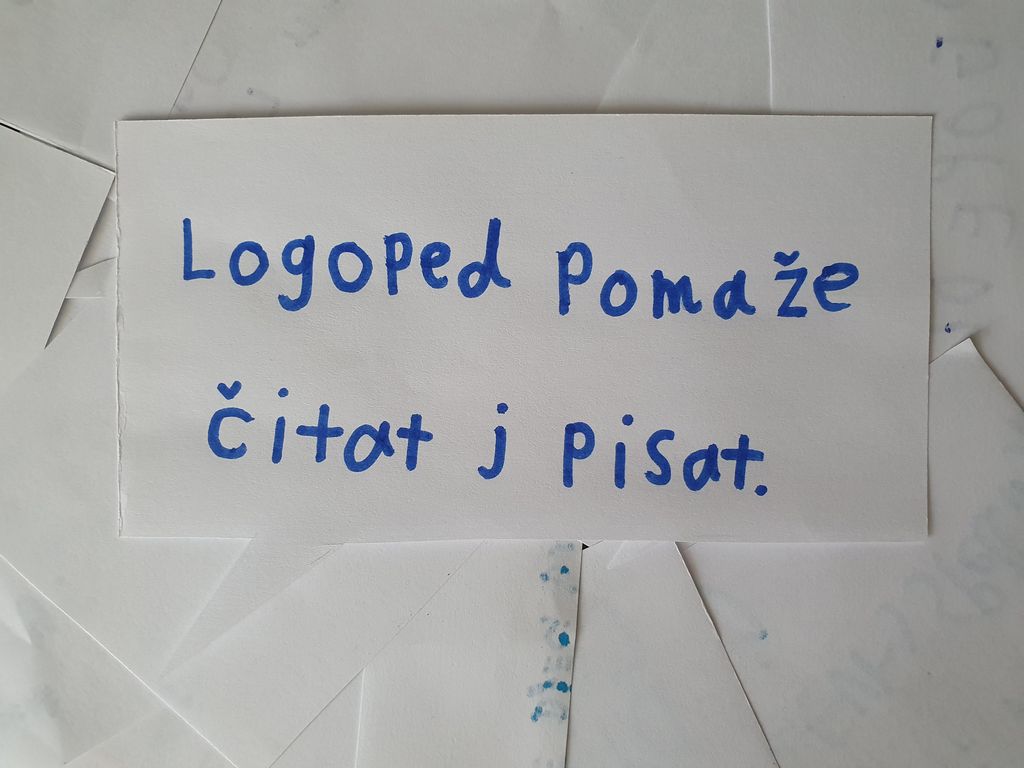 Logoped Pomaže
čitat j pisat.